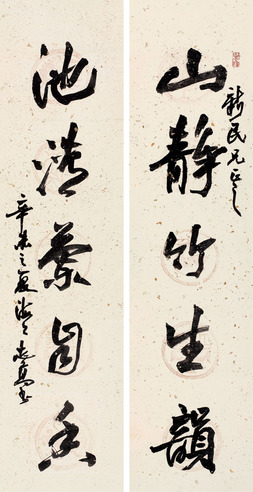 山静竹生韻
新民兄正之
池清蕖自香
辛未之夏